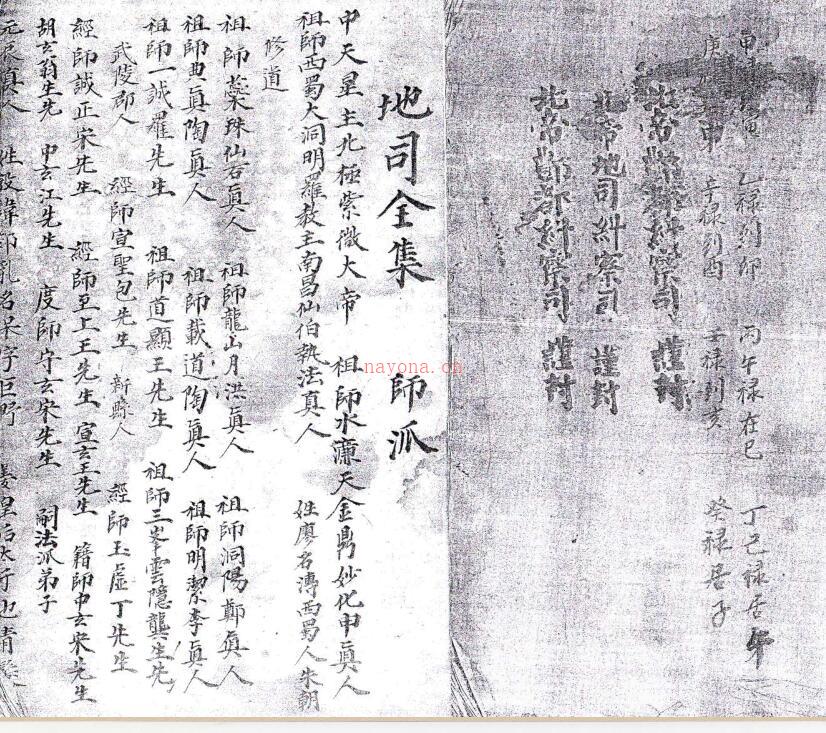 甲祿到寅 乙祿到卯 丙午祿在巳 丁己祿居午
庚祿 申 辛祿到酉 壬祿到亥 癸祿居子
北帝酆都糾察司 謹封
北帝地司糾察司 謹封
北帝酆都糾察司 謹封
地司全集 師派
中天星主北極紫微大帝 祖師水濂天金鼎妙化申眞人
祖師西蜀大洞明羅教主南昌仙伯執法真人 姓廖名溥西蜀人朱朝
修道
祖師蘂珠仙石眞人 祖師龍山月洪眞人 祖師洞陽鄭眞人
祖師典眞陶眞人 祖師載道陶眞人 祖師明潔李眞人
祖師一誠羅先生 祖師道顯王先生 祖師三峯雲隱龔生先
武陵郡人 經師宣聖包先生 新縣人 經師玉虛丁先生
經師誠正宋先生 經師至上王先生 宣玄王先生 籍師中玄宋先生
胡玄翁生先 中玄江先生 度師守玄宋先生 嗣法派弟子
元眞人 姓殷 乳名 字巨野 姜皇后 也
nayona.cn